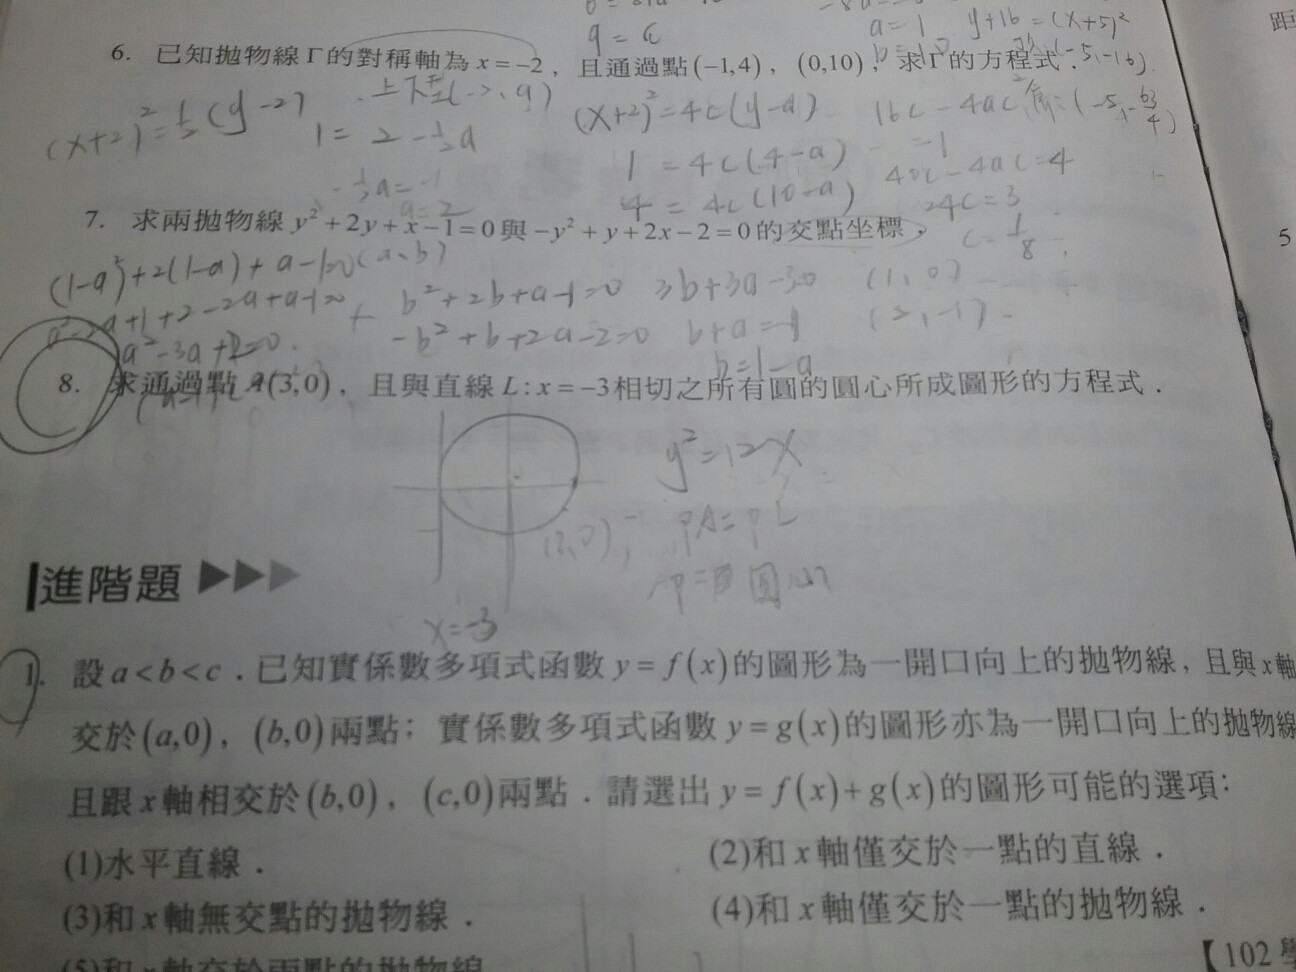 q = c
a=1 y+16=(x+5)²
6. 已知拋物線Γ的對稱軸為x=-2，且通過點(-1,4)，(0,10)，求Γ的方程式．
(x+2)²=½(y-2)
上下型(-2,a)
(x+2)²=4c(y-a)
16c-4ac
=-1
1=2-½a
1=4c(4-a)
40c-4ac=4
-½a=-1
a=2
4=4c(10-a)
24c=3
c=1/8
7. 求兩拋物線y²+2y+x-1=0與-y²+y+2x-2=0的交點坐標，
(1-a)²+2(1-a)+a-1=0 (a,b)
a²-2a+1+2-2a+a-1=0
a²-3a+2=0
b²+2b+a-1=0 3b+3a-3=0 (1,0)
-b²+b+2a-2=0 b+a=1 (2,-1)
b=1-a
8. 求通過點A(3,0)，且與直線L:x=-3相切之所有圓的圓心所成圖形的方程式．
y²=12x
(3,0) PA=PL
P=圓心
x=-3
進階題
1. 設a<b<c．已知實係數多項式函數y=f(x)的圖形為一開口向上的拋物線，且與x軸
交於(a,0)，(b,0)兩點；實係數多項式函數y=g(x)的圖形亦為一開口向上的拋物線
且跟x軸相交於(b,0)，(c,0)兩點．請選出y=f(x)+g(x)的圖形可能的選項：
(1)水平直線． (2)和x軸僅交於一點的直線．
(3)和x軸無交點的拋物線． (4)和x軸僅交於一點的拋物線．
(5)和x軸交於兩點的拋物線
【102學
距
5